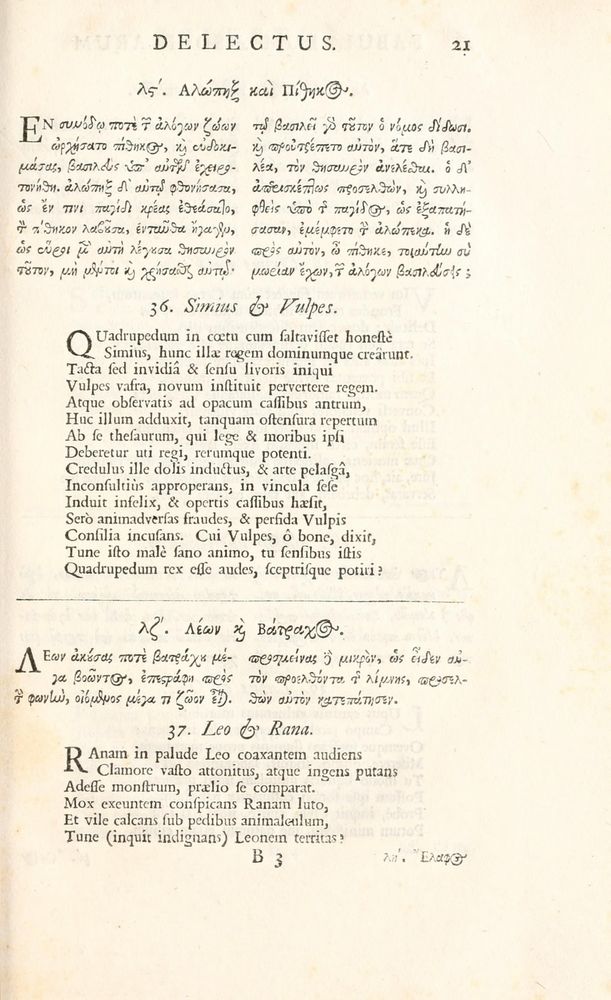 DELECTUS. 21
λϛʹ. Ἀλώπηξ καὶ Πίθηκος.
ΕΝ συνόδῳ ποτὲ τ ἀλόγων ζώων
ὠρχήσατο πίθηκος, κὶ εὐδοκι-
μάσας, βασιλεὺς ὑπ' αὐτῶν ἐχειρο-
τονήθη. ἀλώπηξ δ' αὐτῷ φθονήσασα,
ὡς ἔν τινι παγίδι κρέας ἐθεάσατο,
τ πίθηκον λαβοῦσα, ἐνταῦθα ἤγαγεν,
ὡς εὕροι μὲν αὐτὴ λέγουσα θησαυρὸν
τοῦτον, μὴ μέντοι κὶ χρήσασθαι αὐτῷ·
τῷ βασιλεῖ γὸ τοῦτον ὁ νόμος δίδωσι.
κὶ προὐτρέπετο αὐτὸν, ἅτε δὴ βασι-
λέα, τὸν θησαυρὸν ἀνελέσθαι. ὁ δ'
ἀπερισκέπτως προσελθὼν, κὶ συλλη-
φθεὶς ὑπὸ τ παγίδος, ὡς ἐξαπατή-
σασαν, ἐμέμφετο τ ἀλώπεκα. ἡ δὲ
πρὸς αὐτὸν, ὦ πίθηκε, τοιαύτην σὺ
μωρίαν ἔχων, τ ἀλόγων βασιλεύσεις;
36. Simius & Vulpes.
QUadrupedum in cœtu cum saltavisset honestè
Simius, hunc illæ regem dominumque creârunt.
Tacta sed invidiâ & sensu livoris iniqui
Vulpes vafra, novum instituit pervertere regem.
Atque observatis ad opacum cassibus antrum,
Huc illum adduxit, tanquam ostensura repertum
Ab se thesaurum, qui lege & moribus ipsi
Deberetur uti regi, rerumque potenti.
Credulus ille dolis inductus, & arte pelasgâ,
Inconsultiùs approperans, in vincula sese
Induit infelix, & opertis cassibus hæsit,
Serò animadversas fraudes, & perfida Vulpis
Consilia incusans. Cui Vulpes, ô bone, dixit,
Tune isto malè sano animo, tu sensibus istis
Quadrupedum rex esse audes, sceptrisque potiri?
λζʹ. Λέων κὶ Βάτραχος.
ΛΕων ἀκούσας ποτὲ βατράχου μέ-
γα βοῶντος, ἐπεστράφη πρὸς
τ φωνὴν, οἰόμενος μέγα τι ζῶον εἶναι.
προσμείνας ὃ μικρὸν, ὡς εἶδεν αὐ-
τὸν προελθόντα τ λίμνης, προσελ-
θὼν αὐτὸν κατεπάτησεν.
37. Leo & Rana.
RAnam in palude Leo coaxantem audiens
Clamore vasto attonitus, atque ingens putans
Adesse monstrum, prælio se comparat.
Mox exeuntem conspicans Ranam luto,
Et vile calcans sub pedibus animalculum,
Tune (inquit indignans) Leonem territas?
B 3 λη'. Ἔλαφος